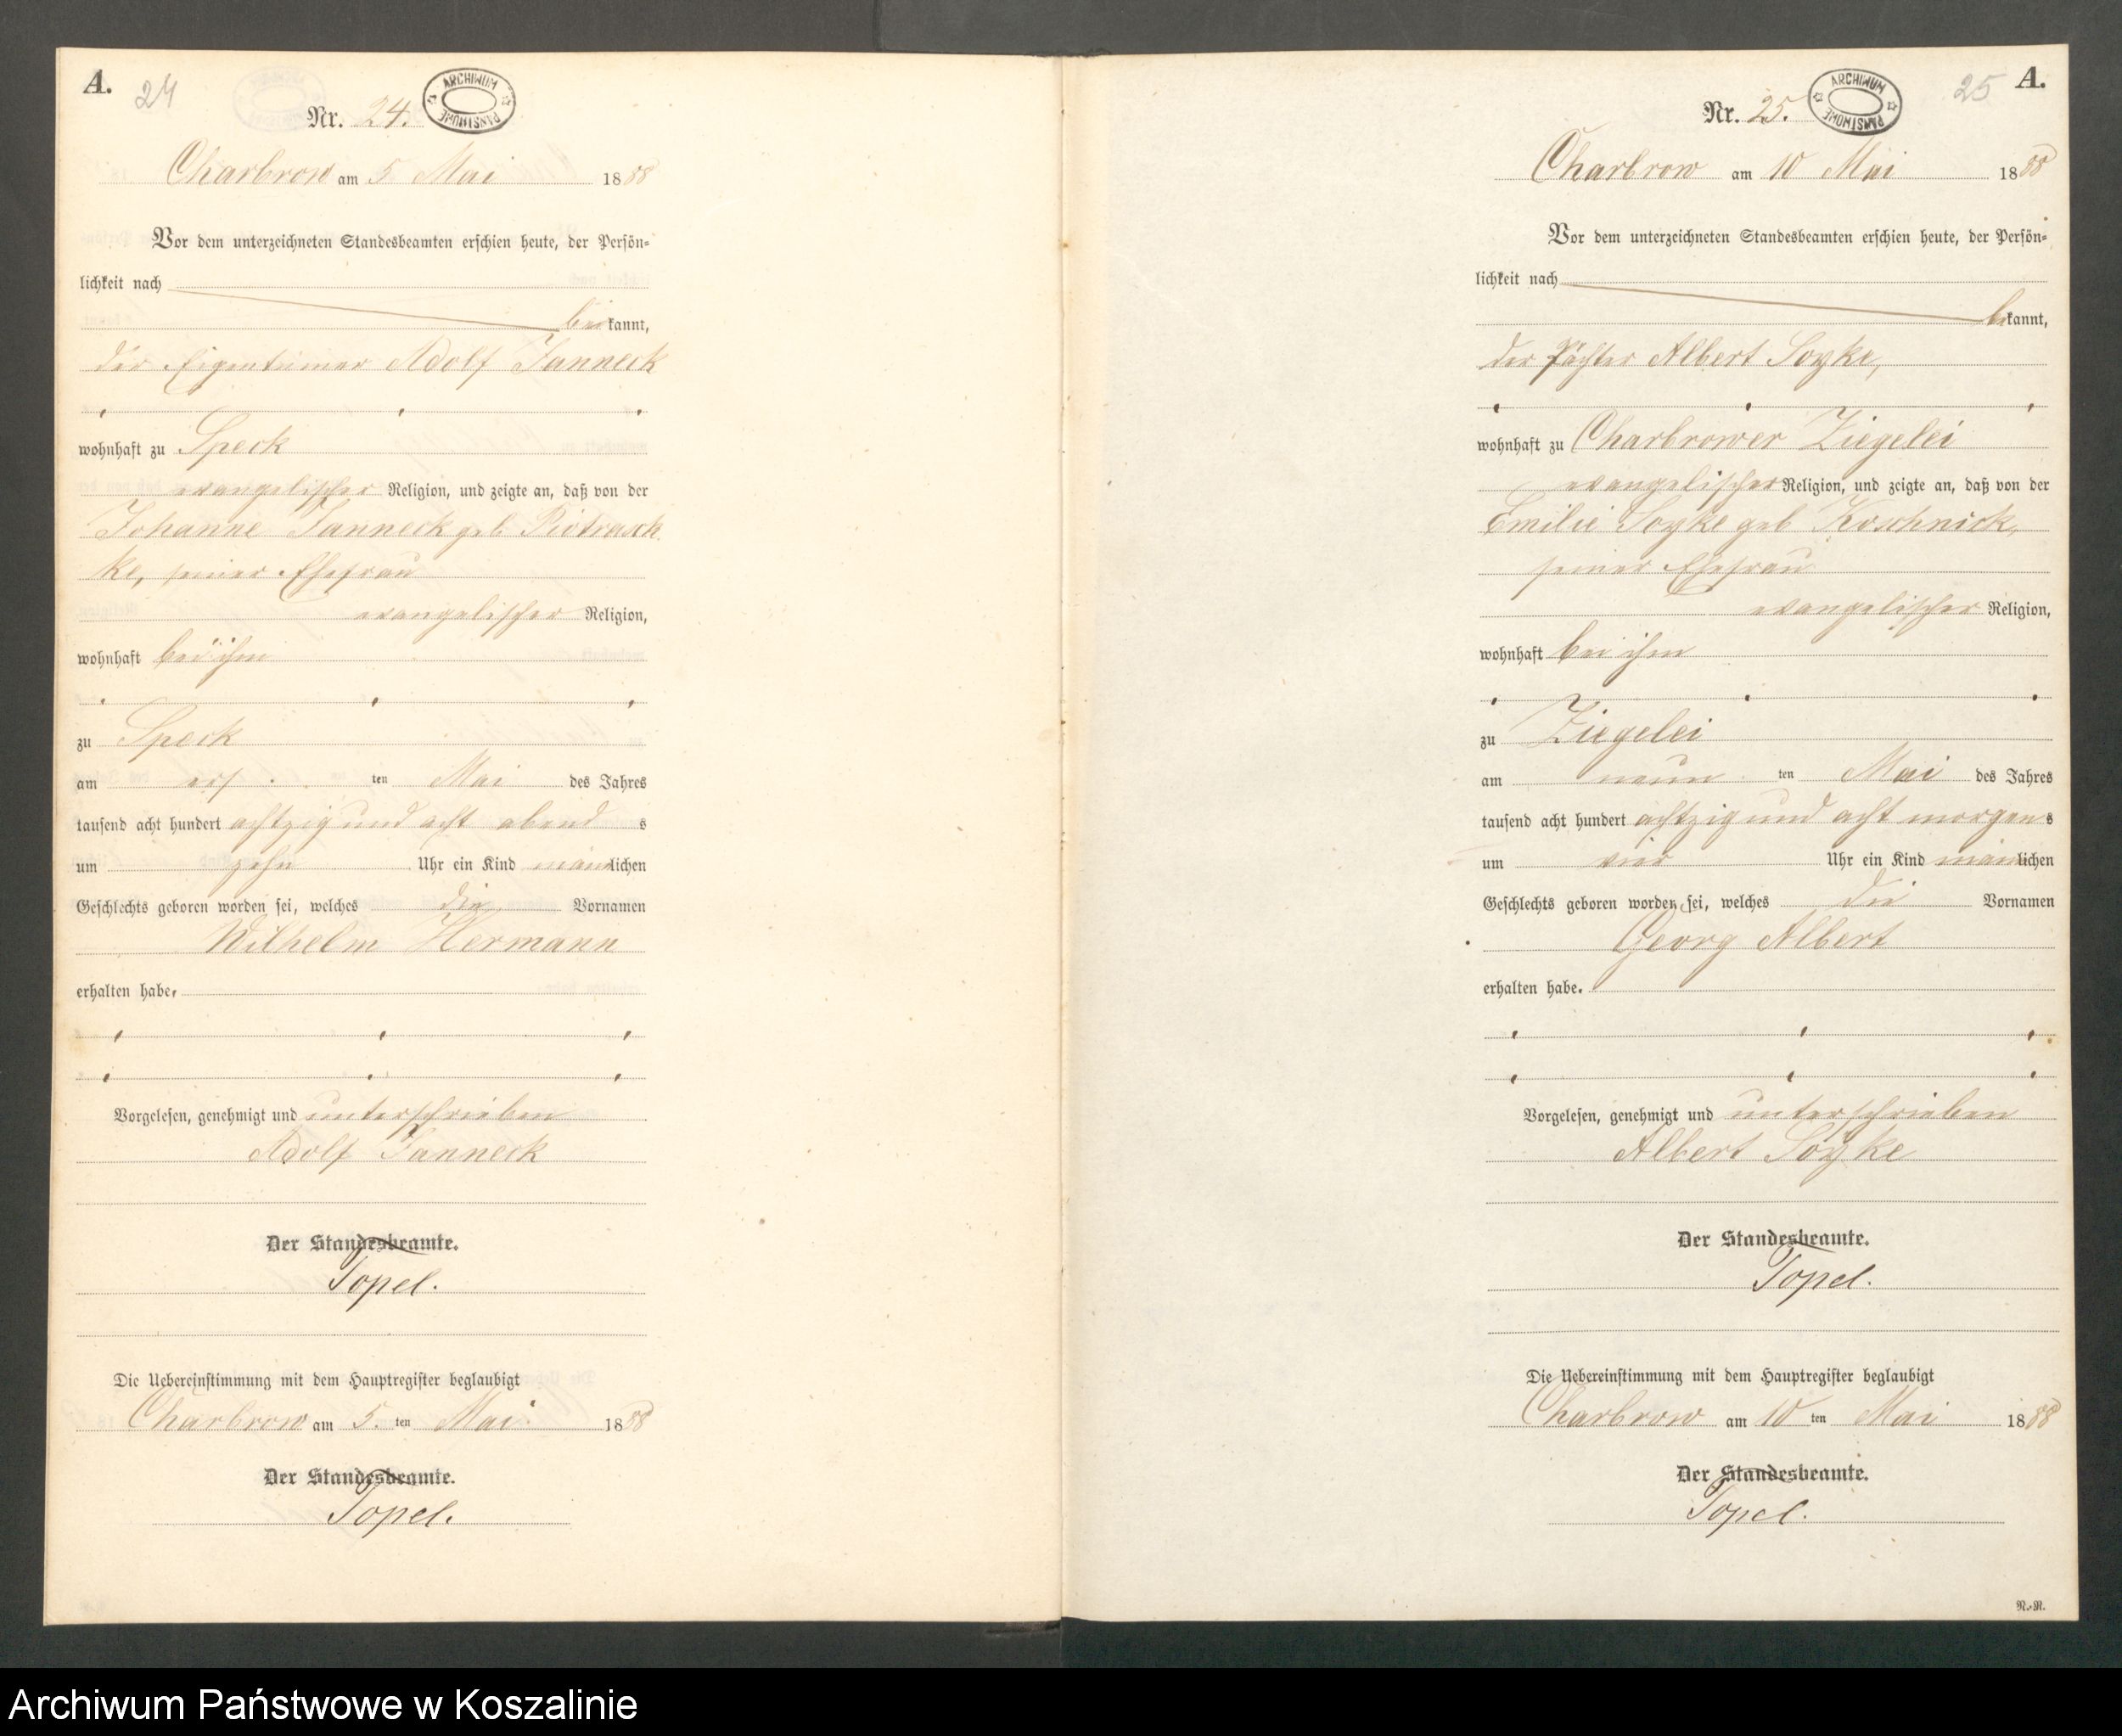 A.
24
Nr. 24.
ARCHIWUM PAŃSTWOWE
Charbrow am 5 Mai 1888
Vor dem unterzeichneten Standesbeamten erschien heute, der Persön-
lichkeit nach
bekannt,
der Eigentümer Adolf Janneck
wohnhaft zu Speck
evangelischer Religion, und zeigte an, daß von der
Johanne Janneck geb Piotrasch
ke, seiner Ehefrau
evangelischer Religion,
wohnhaft bei ihm
zu Speck
am ers ten Mai des Jahres
tausend acht hundert achtzig und acht abends
um zehn Uhr ein Kind männlichen
Geschlechts geboren worden sei, welches die Vornamen
Wilhelm Hermann
erhalten habe.
Vorgelesen, genehmigt und unterschrieben
Adolf Janneck
Der Standesbeamte.
Topel.
Die Uebereinstimmung mit dem Hauptregister beglaubigt
Charbrow am 5. ten Mai 1888
Der Standesbeamte.
Topel.
25
A.
Nr. 25.
ARCHIWUM PAŃSTWOWE
Charbrow am 10 Mai 1888
Vor dem unterzeichneten Standesbeamten erschien heute, der Persön-
lichkeit nach
bekannt,
der Pächter Albert Soyke,
wohnhaft zu Charbrower Ziegelei
evangelischer Religion, und zeigte an, daß von der
Emilie Soyke geb Koschnick,
seiner Ehefrau
evangelischer Religion,
wohnhaft bei ihm
zu Ziegelei
am neun ten Mai des Jahres
tausend acht hundert achtzig und acht morgens
um vier Uhr ein Kind männlichen
Geschlechts geboren worden sei, welches die Vornamen
Georg Albert
erhalten habe.
Vorgelesen, genehmigt und unterschrieben
Albert Soyke
Der Standesbeamte.
Topel.
Die Uebereinstimmung mit dem Hauptregister beglaubigt
Charbrow am 10 ten Mai 1888
Der Standesbeamte.
Topel.
N.-N.
Archiwum Państwowe w Koszalinie